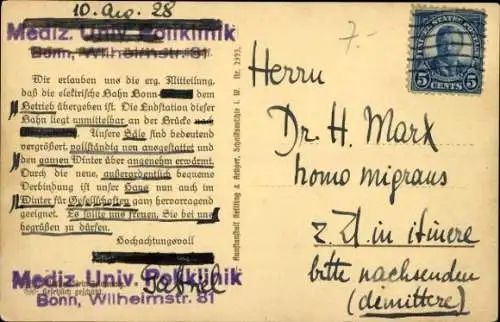 10. Aug. 28
Mediz. Univ. Poliklinik
Bonn, Wilhelmstr. 31
Wir erlauben uns die erg. Mitteilung,
daß die elektrische Bahn Bonn- dem
Betrieb übergeben ist. Die Endstation dieser
Bahn liegt unmittelbar an der Brücke nach
Unsere Säle sind bedeutend
vergrößert, vollständig neu ausgestattet und
den ganzen Winter über angenehm erwärmt.
Durch die neue, außerordentlich bequeme
Verbindung ist unser Haus nun auch im
Winter für Gesellschaften ganz hervorragend
geeignet. Es sollte uns freuen, Sie bei uns
begrüßen zu dürfen.
Hochachtungsvoll
Mediz. Univ. Poliklinik
Bonn, Wilhelmstr. 31
Gesetzlich geschützt
Nr. 2393.
7.-
UNITED STATES POSTAGE
5 CENTS 5
Herrn
Dr. H. Marx
homo migraus
z. Zt. in itinere
bitte nachsenden
(dimittere)